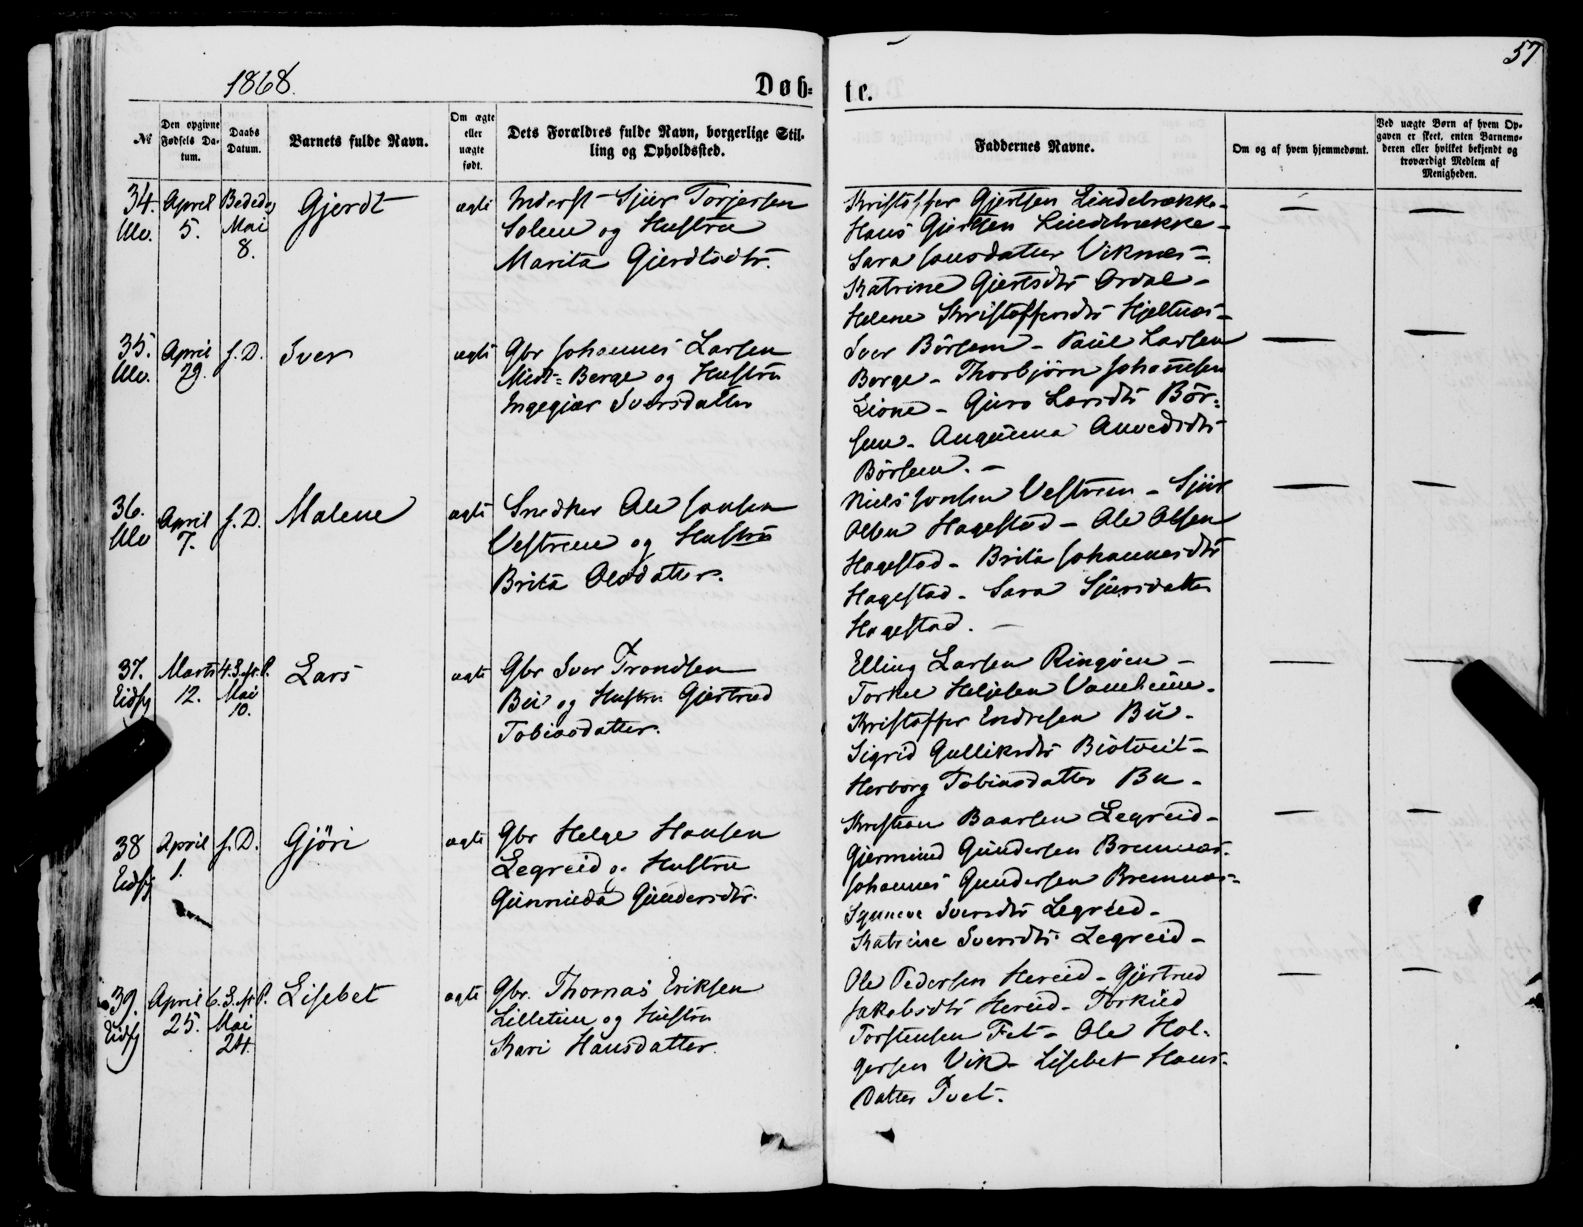 57
1868.
Døb-
te.
№
Den opgivne Fødsels Datum.
Daabs Datum.
Barnets fulde Navn.
Om ægte eller uægte født.
Dets Forældres fulde Navn, borgerlige Stilling og Opholdssted.
Faddernes Navne.
Om og af hvem hjemmedøbt.
Ved uægte Børn af hvem Opgaven er skeet, enten Barnemoderen eller hvilket bekjendt og troværdigt Medlem af Menigheden.
34. Ulv.
April 5.
Bededag Mai 8.
Gjerdt
ægte
Inderst Sjur Torjersen
Solem og Hustru
Marita Gjerdtsdtr.
Kristoffer Gjertsen Lindebrække-
Hans Gjertsen Lindebrække-
Sara Jonsdatter Viknæs-
Katrine Gjertsdtr Ordal-
Helene Kristoffersdtr Hjeltnæs-
35. Ulv.
April 29.
s. D.
Iver
ægte
Gbr Johannes Larsen
Midt-Berge og Hustru
Ingegjær Iversdatter
Iver Børsem - Paul Larsen
Berge - Thorbjørn Johannesen
Lione - Guro Larsdtr Bør-
sem - Angunna Anvedsdtr
Børsem. -
36. Ulv
April 7.
s. D.
Malene
ægte
Snedker Ole Jonsen
Vestrem og Hustru
Brita Olsdatter.
Niels Jonsen Vestrem - Sjur
Olsen Hagestad - Ole Olsen
Hagestad - Brita Johannesdtr
Hagestad - Sara Sjursdatter
Hagestad. -
37. Eidfj
Marts 12.
4. S. f. P. Mai 10.
Lars
ægte
Gbr Iver Trondsen
Bu og Hustru Gjertrud
Tobiasdatter.
Elling Larsen Ringøen -
Torkel Heljesen Væmheim-
Kristoffer Endresen Bu -
Sigrid Gulliksdtr Biotveit-
Herborg Tobiasdatter Bu -
38 Eidfj
April 1.
s. D.
Gjøri
ægte
Gbr Helge Hansen
Legreid og Hustru
Gunnilda Gundersdtr.
Kristian Baarsen Legreid -
Gjermund Gundersen Bremnæs-
Johannes Gundersen Bremnæs-
Synneve Iversdtr Legreid -
Katrine Iversdtr Legreid -
39. Eidfj
April 25.
6. S. f. P. Mai 24.
Lisebet
ægte
Gbr. Thomas Eriksen
Lilletun og Hustru
Kari Hansdatter.
Ole Pedersen Hereid - Gjertrud
Jakobsdtr Hereid - Torkild
Torstensen Fet - Ole Hol-
gersen Vik - Lisebet Hans-
datter Tvet.